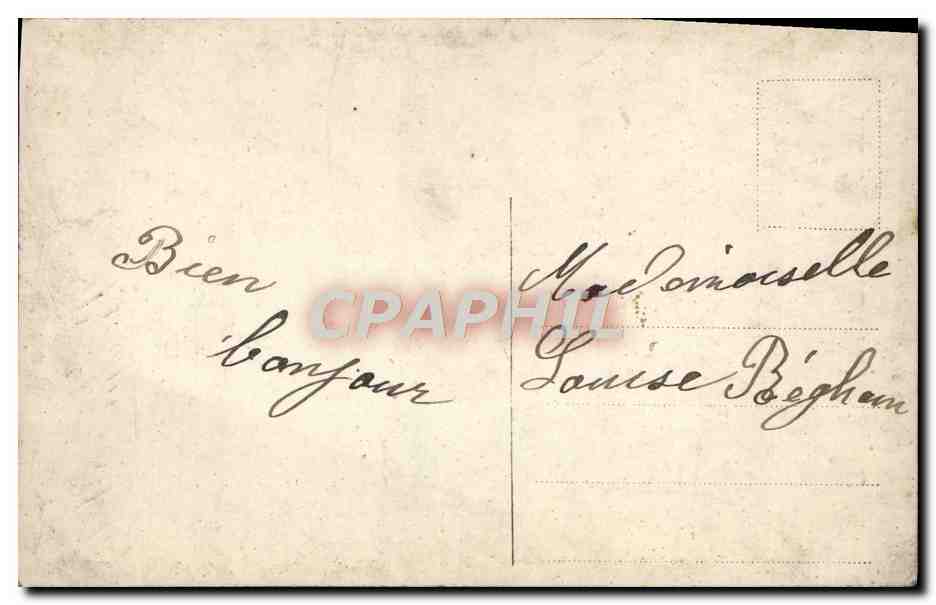 Bien
bonjour
CPAPHIL
Mademoiselle
Louise Béghain